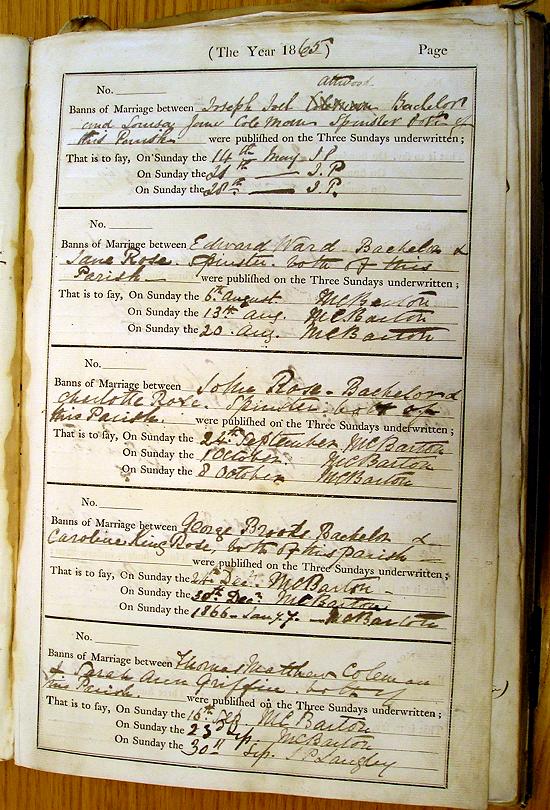 (The Year 1865) Page
No.
attwood
Banns of Marriage between Joseph Joel Bachelor
and Louisa Jane Coleman Spinster both of
this Parish were publiſhed on the Three Sundays underwritten;
That is to ſay, On Sunday the 14th May J.P
On Sunday the 21st — J.P.
On Sunday the 28th — J.P.
No.
Banns of Marriage between Edward Ward Bachelor &
Jane Rose Spinster both of this
Parish were publiſhed on the Three Sundays underwritten;
That is to ſay, On Sunday the 6th August McBarton
On Sunday the 13th Aug. McBarton
On Sunday the 20 Aug. McBarton
No.
Banns of Marriage between John Rose Bachelor &
Charlotte Rose Spinster both of
this Parish. were publiſhed on the Three Sundays underwritten;
That is to ſay, On Sunday the 24th September McBarton
On Sunday the 1 October. McBarton
On Sunday the 8 October McBarton
No.
Banns of Marriage between George Brooks Bachelor &
Caroline King Rose, both of this Parish
were publiſhed on the Three Sundays underwritten;
That is to ſay, On Sunday the Decr McBarton
On Sunday the Decr McBarton
On Sunday the 1866 - Jany 7. McBarton
No.
Banns of Marriage between Thomas Matthew Coleman
& Sarah Ann Griffin both of
this Parish were publiſhed on the Three Sundays underwritten;
That is to ſay, On Sunday the 16th Sep McBarton
On Sunday the 23d Sep. McBarton
On Sunday the 30th Sep. Langley